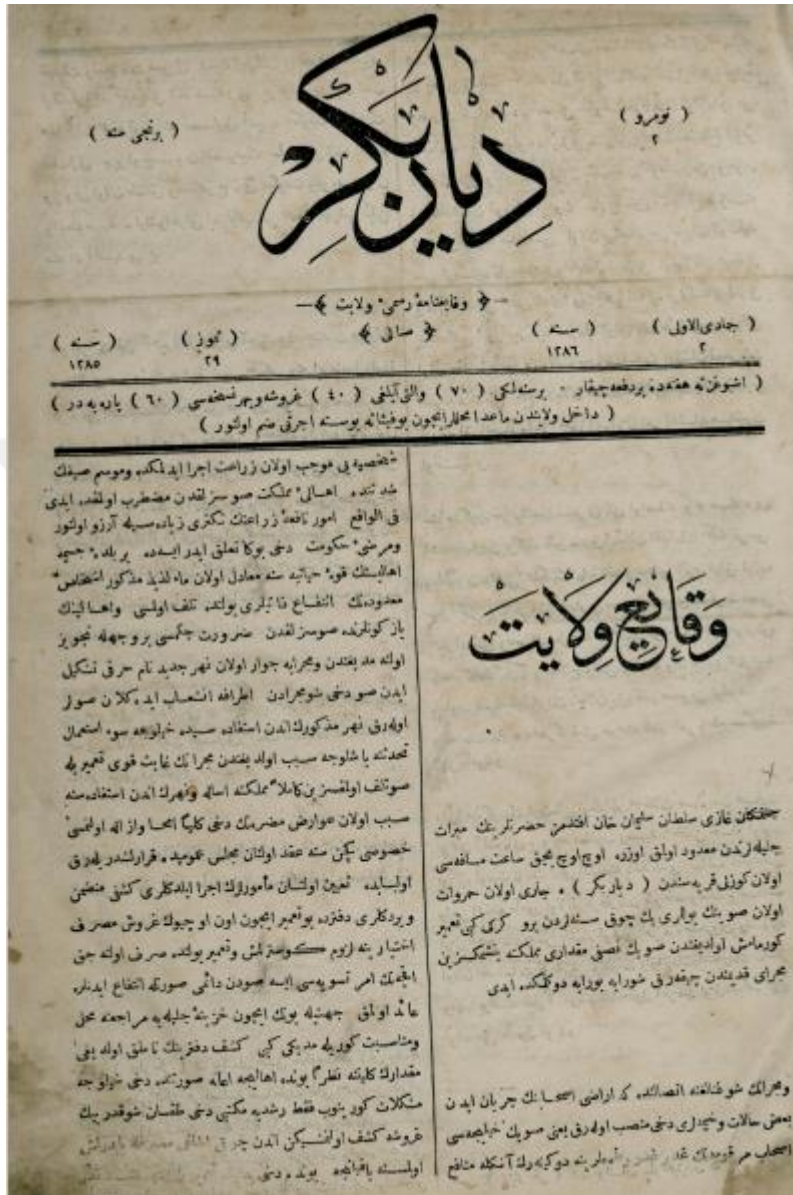 ( نومرو )
٢
( برنجی سنه )
دیاربکر
﴿ وقایعنامهٔ رسمیٔ ولایت ﴾
( جمادی‌الاولی )
٢
( سنه )
١٢٨٦
﴿ صالی ﴾
( تموز )
٢٩
( سنه )
١٢٨٥
( اشبو غزته هفته‌ده بر دفعه چیقار ٠ بر سنه‌لکی ( ٧٠ ) والتی آیلغی ( ٤٠ ) غروشه و بهر نسخه‌سی ( ٦٠ ) پاره‌یه در )
( داخل ولایتدن ماعدا محللر ایچون پوسته اجرتی ضم اولنور )
وقایع ولایت
جنتمکان غازی سلطان سلیمان خان افندمز حضرتلرینك مبرات
جلیله‌لرندن معدود اولمق اوزره اوچ بچق ساعت مسافه‌سی
اولان کوزلی قریه‌سندن ( دیاربکر ) ه جاری اولان حمروات
اولان صوینك یوللری پك چوق سنه‌لردن برو کرکی کبی تعمیر
کورمامش اولدیغندن صویك نصف مقداری مملکته یتشمکسزین
مجرای قدیمندن چیقه‌رق شورایه بورایه دوکلمکده ایدی
ومجرانك شو اراضی اصحابنك جریان ایدن
بعض حالات دخی منضم اوله‌رق یعنی صویك
اصحاب هر منافع
شخصیه‌یی موجب اولان زراعت اجرا ایدلمکده وموسم صیفك
شدتنده اهالیٔ مملکت صوسزلقدن مضطرب اولمقده ایدی
فی الواقع امور نافعهٔ زراعتك تکثری زیاده‌سیله آرزو اولنور
ومرضیٔ حکومت دخی بوکا تعلق ایدر ایسه‌ده بر بلدهٔ جسیمه
اهالیسنك قوهٔ حیاتیه سنه معادل اولان ماء لذیذ مذکور اشخاص
معدوده‌نك انتفاع ذاتیلری یولنده تلف اولمسی واهالینك
یاز کونلرنده صوسزلقدن ضرورت چکمسی بر وجهله تجویز
اولنه‌مدیغندن ومجرایه جوار اولان نهر جدید نام حرقی تشکیل
ایدن صو دخی شو مجرادن اطرافه انشعاب ایده‌کلان صولر
اوله‌رق نهر مذکورك اندن استفاده سوء استعمال
باشلوجه سبب اولدیغندن مجرانك غایت قوی تعمیریله
صو تلف اولمقسزین کاملا مملکته اساله ونهرك اندن استفاده‌سنه
سبب اولان عوارض مضره‌نك دخی کلیاً امحا وازاله اولنمسی
خصوصی کچن سنه عقد اولنان مجلس عمومیده قرارلشدریله‌رق
اولبابده تعیین اولنان مأمورلرك اجرا ایلدکلری کشفی متضمن
ویردکلری دفترده بو تعمیر ایچون اون اوچ یوك غروش مصرف
اختیارینه لزوم کوسترلمش وتعمیر یولنده صرف اولنه جق
اقچه‌نك امر تسویه‌سی ایسه صودن دائمی صورتله انتفاع ایدنلره
عائد اولمق جهتیله بونك ایچون خزینهٔ جلیله‌یه مراجعته محل
ومناسبت کوریله‌مدیکی کبی کشف دفترینك ناطق اولدیغی
مقدارك کلیتنه نظراً بونده اهالیجه اعانه صورتنده دخی خیلوجه
مشکلات کورینوب فقط رشدیه مکتبی دخی طقسان شو قدر بیك
غروشه کشف اولنمش ایکن
اولسنه یاقینجه بونده دخی